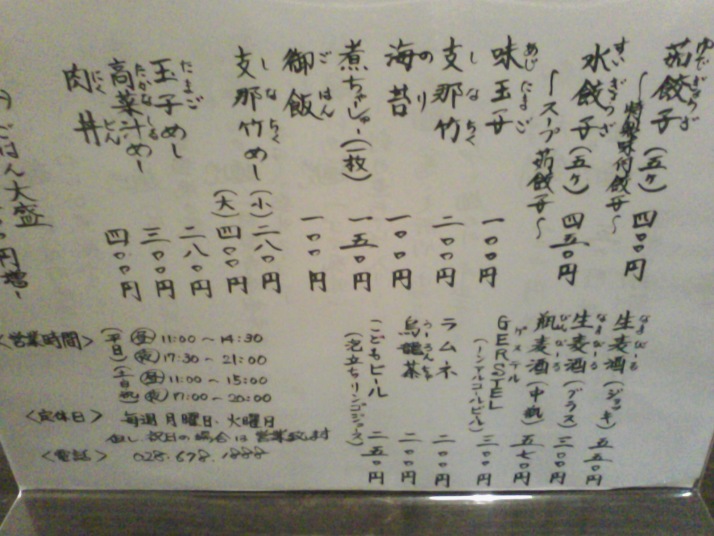 茹餃子（五ケ） 四〇〇円
〜特製味付餃子〜
水餃子（五ケ） 四五〇円
〜スープ茹餃子〜
味玉子 一〇〇円
支那竹 二〇〇円
海苔 一〇〇円
煮ちゃしゅー（一枚） 一五〇円
御飯 一〇〇円
支那竹めし（小）二八〇円
（大）四〇〇円
玉子めし 二八〇円
高菜汁めし 三〇〇円
肉丼 四〇〇円
ごはん大盛
生麦酒（ジョッキ） 五五〇円
生麦酒（グラス） 三〇〇円
瓶麦酒（中瓶） 五七〇円
GERSTEL（ノンアルコールビール） 三〇〇円
ラムネ 二〇〇円
烏龍茶 二〇〇円
こどもビール（泡立ちリンゴジュース） 二五〇円
〈営業時間〉
（平日）昼 11:00〜14:30
夜 17:30〜21:00
（土日祝）昼 11:00〜15:00
夜 17:00〜20:00
〈定休日〉 毎週月曜日、火曜日
但し祝日の場合は営業致します
〈電話〉 028.678.1888